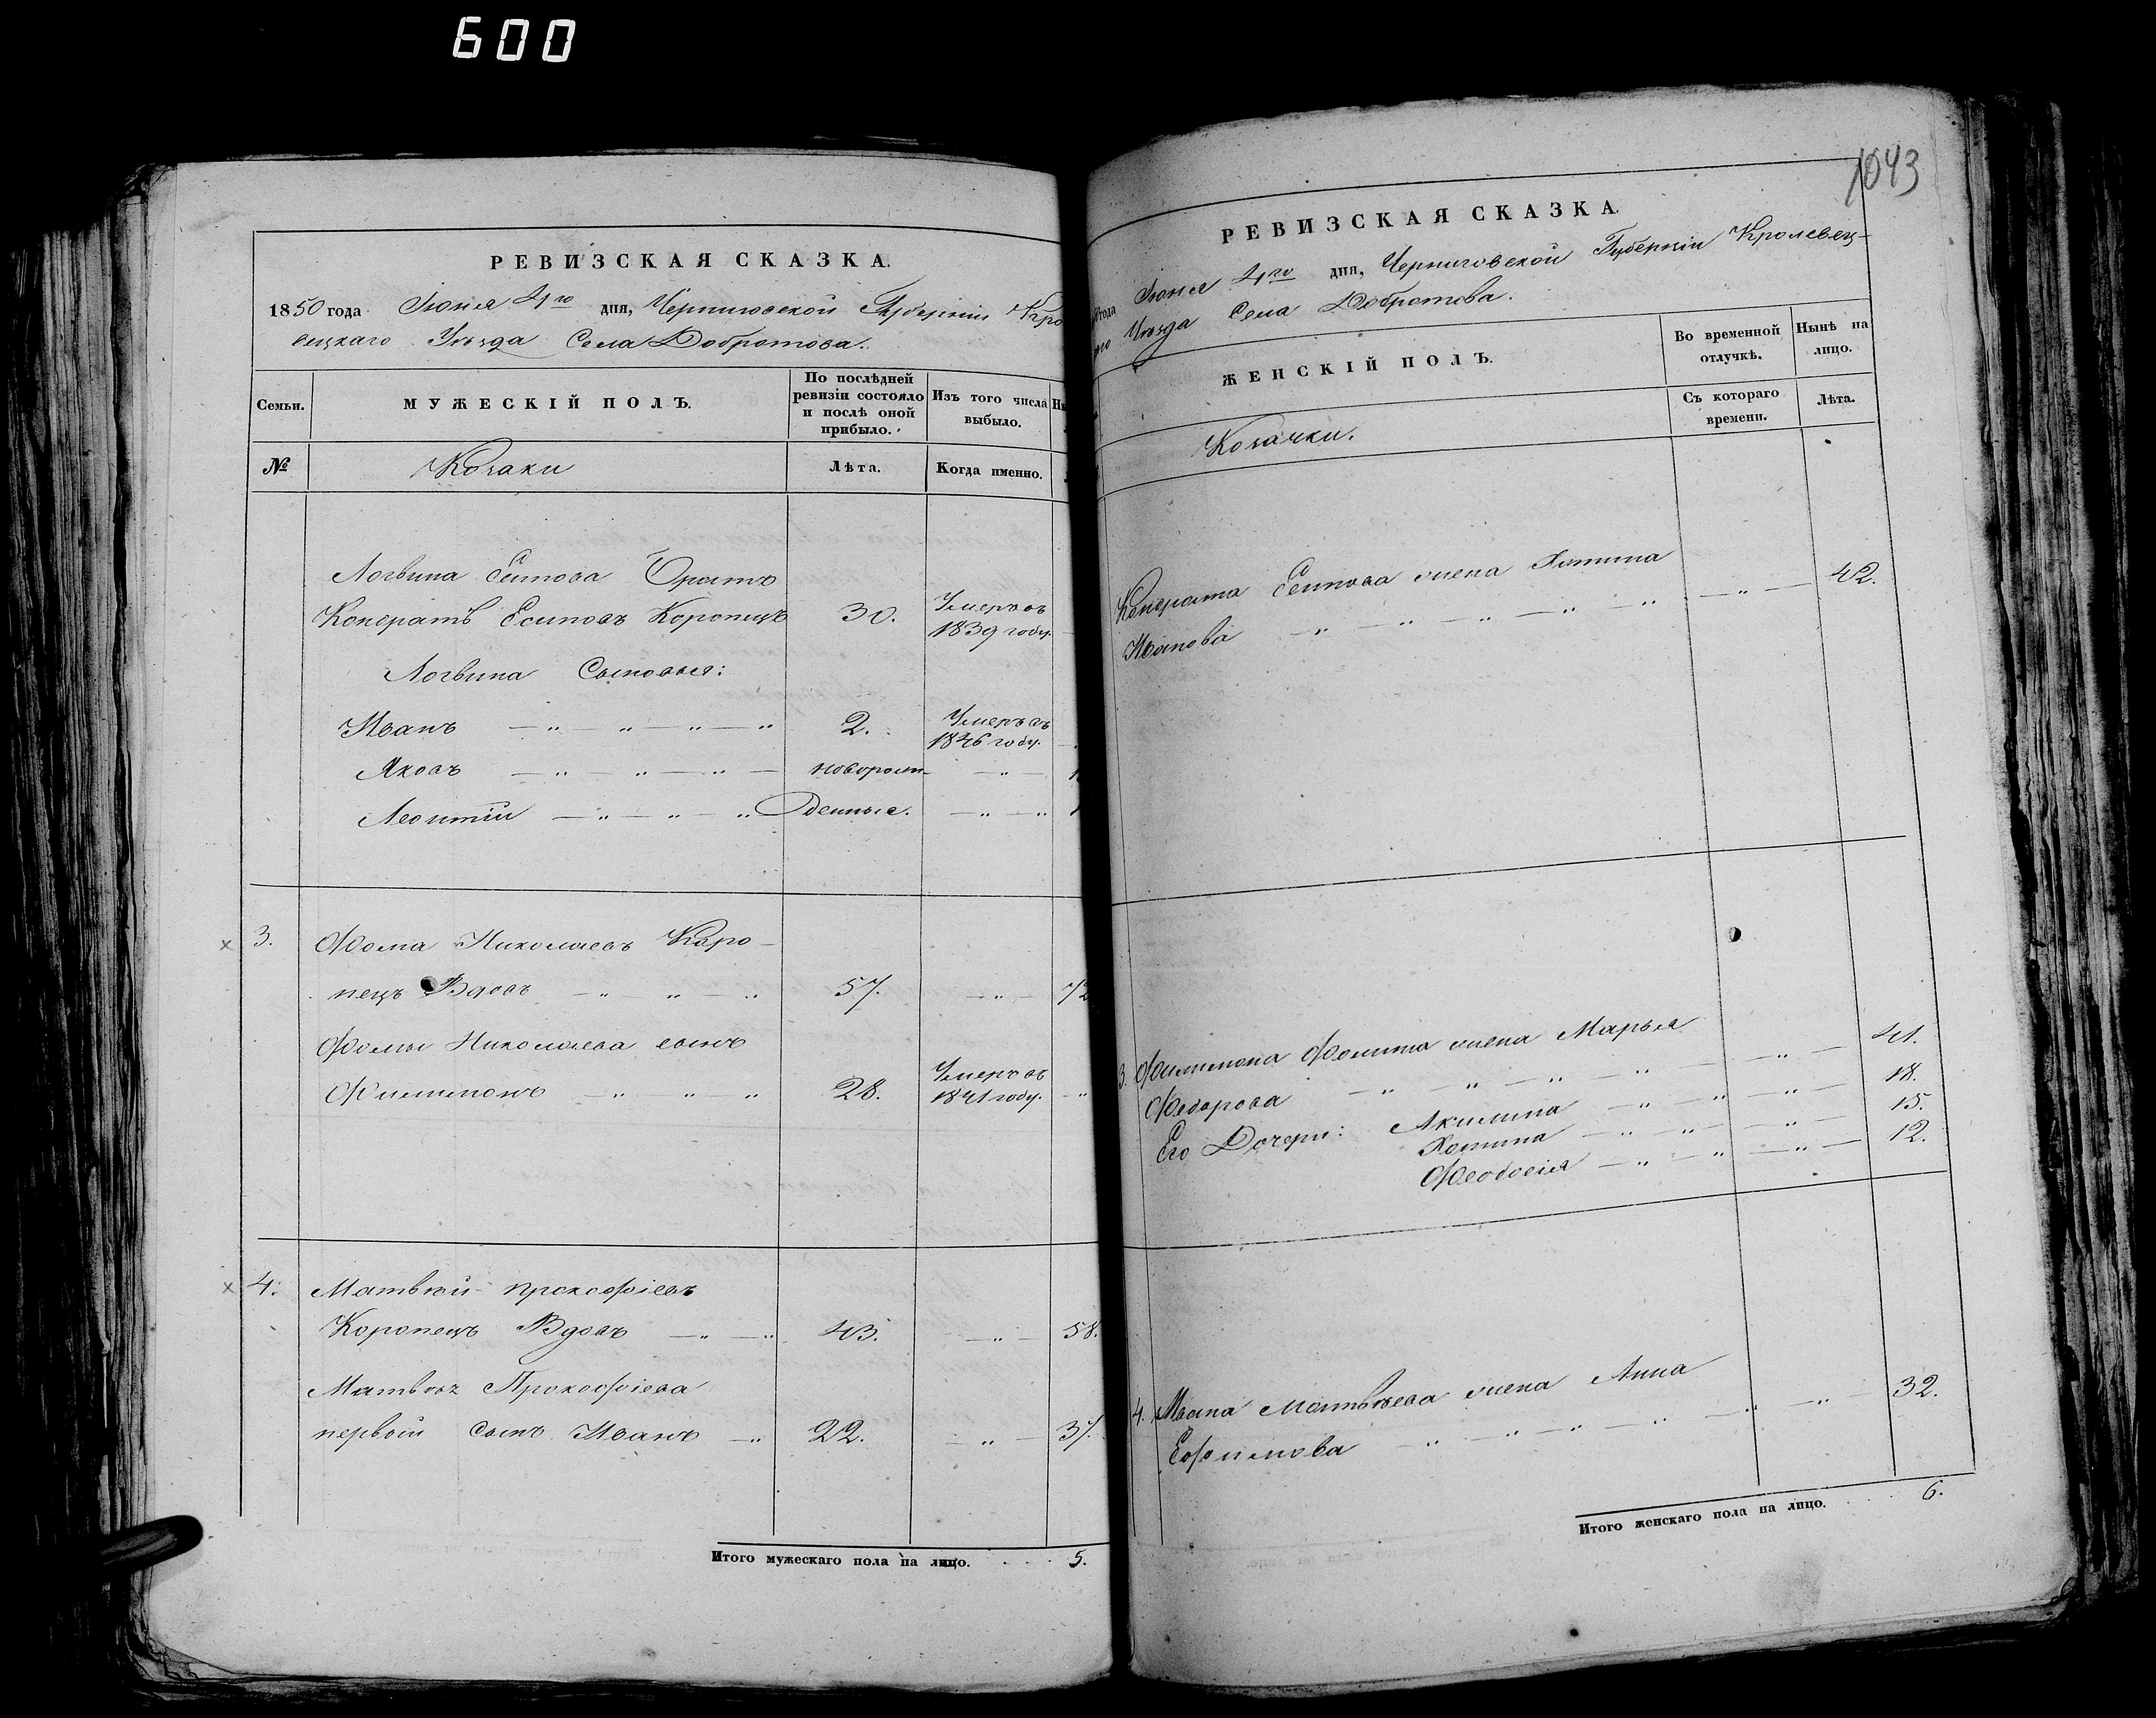 600
РЕВИЗСКАЯ СКАЗКА.
1850 года Іюня 4го дня, Черниговской Губерніи Кро
вецкаго Уѣзда Села Добротова.
Семьи.
МУЖЕСКІЙ ПОЛЪ.
По послѣдней
ревизіи состояло
и послѣ оной
прибыло.
Изъ того числа
выбыло.
№
Козаки
Лѣта.
Когда именно.
Логвина Есипова Братъ
Кондратъ Есиповъ Коропецъ 30. Умеръ въ
1839 году.
Логвина Сыновья:
Иванъ 2. Умеръ въ
1846 году.
Яковъ новорож-
Леонтій денные.
3. Фома Николаевъ Коро-
пецъ Вдовъ 57. 72
Фомы Николаева сынъ
Филимонъ 28. Умеръ въ
1841 году.
4. Матвѣй Прокофіевъ
Коропецъ Вдовъ 43. 58.
Матвѣя Прокофіева
первой сынъ Иванъ 22. 37.
Итого мужескаго пола на лицо. 5.
1043
РЕВИЗСКАЯ СКАЗКА
года Іюня 4го дня, Черниговской Губерніи Кролевец-
Уѣзда Села Добротова.
ЖЕНСКІЙ ПОЛЪ.
Во временной
отлучкѣ.
Нынѣ на
лицо.
Козачки.
Съ котораго
времени.
Лѣта.
Кондрата Есипова жена Хотина
Иванова 42.
3. Филимона Фомина жена Марья
Федорова 41.
Его Дочери: Акилина 18.
Хотина 15.
Феодосія 12.
4. Ивана Матвѣева жена Анна
Ефимова 32.
Итого женскаго пола на лицо. 6.